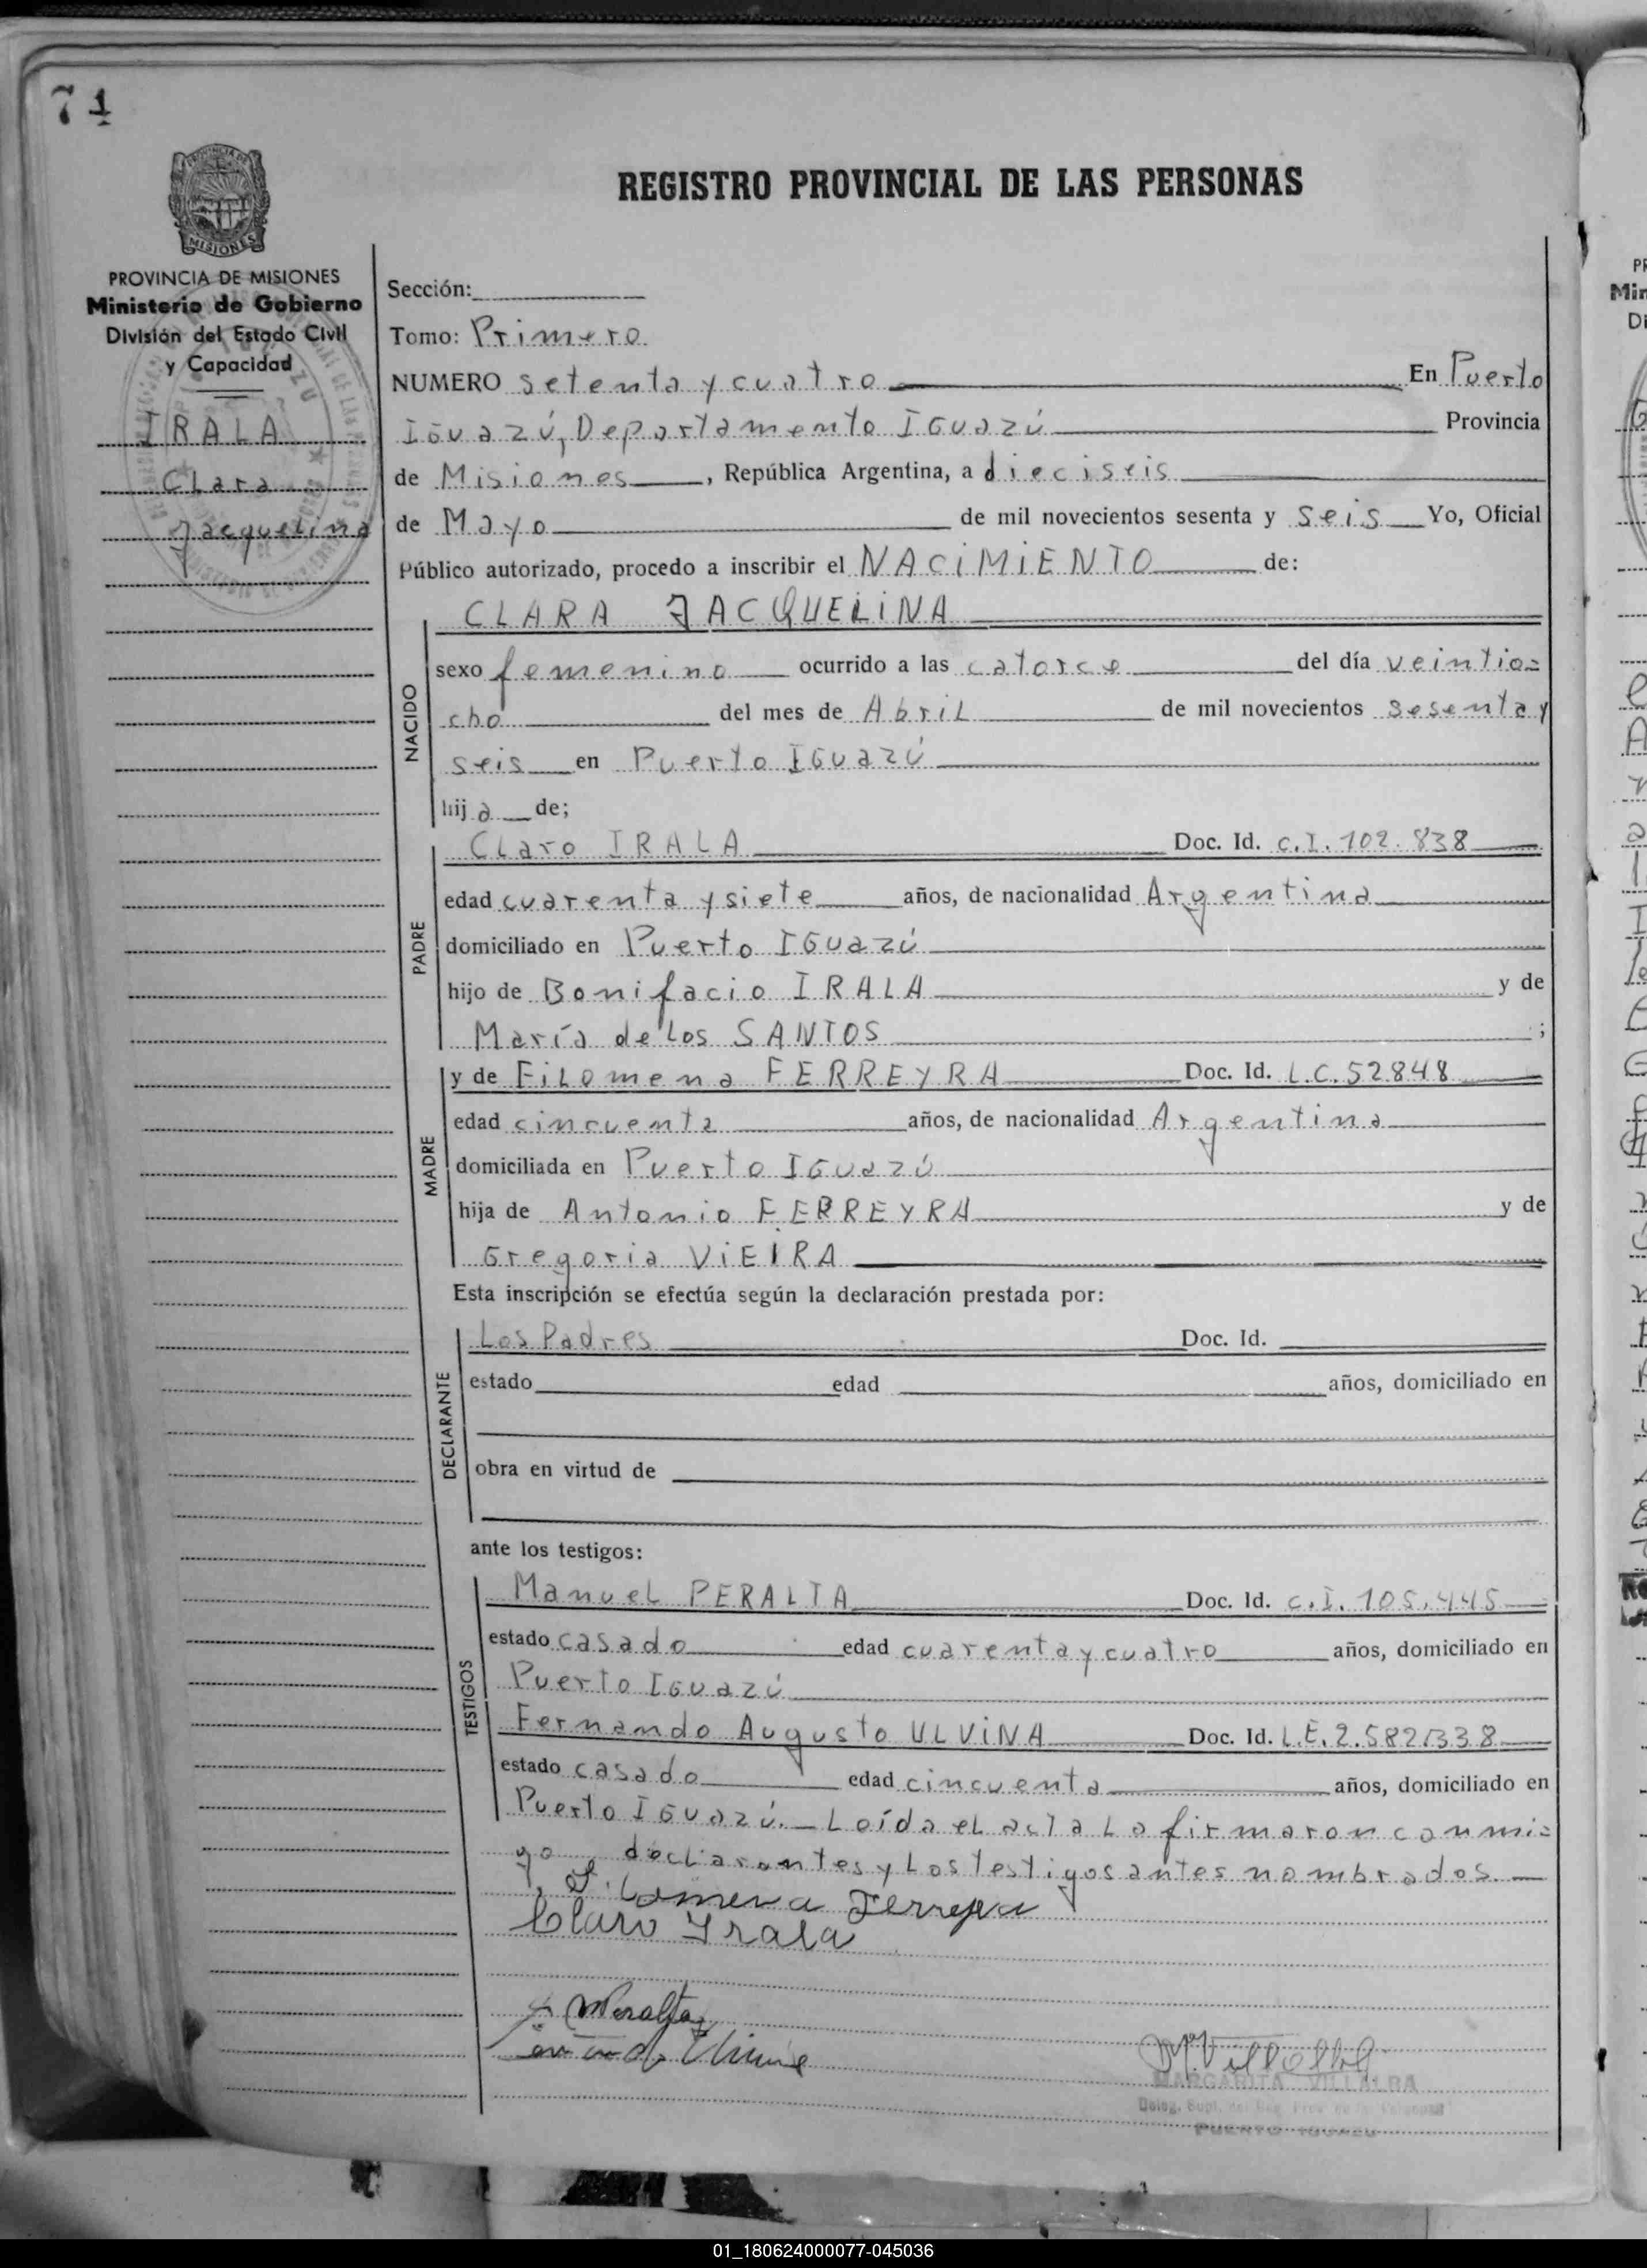 74
REGISTRO PROVINCIAL DE LAS PERSONAS
PROVINCIA DE
MISIONES
PROVINCIA DE MISIONES
Ministerio de Gobierno
División del Estado Civil
y Capacidad
IRALA
Clara
Jacquelina
Sección:
Tomo: Primero
NUMERO setenta y cuatro En Puerto
Iguazú, Departamento Iguazú Provincia
de Misiones, República Argentina, a dieciseis
de Mayo de mil novecientos sesenta y seis Yo, Oficial
Público autorizado, procedo a inscribir el NACIMIENTO de:
NACIDO
CLARA JACQUELINA
sexo femenino ocurrido a las catorce del día veintio=
cho del mes de Abril de mil novecientos sesenta y
seis en Puerto Iguazú
hija de;
PADRE
Claro IRALA Doc. Id. C.I. 102.838
edad cuarenta y siete años, de nacionalidad Argentina
domiciliado en Puerto Iguazú
hijo de Bonifacio IRALA y de
María de los SANTOS ;
MADRE
y de Filomena FERREYRA Doc. Id. L.C. 52848
edad cincuenta años, de nacionalidad Argentina
domiciliada en Puerto Iguazú
hija de Antonio FERREYRA y de
Gregoria VIEIRA
Esta inscripción se efectúa según la declaración prestada por:
DECLARANTE
Los Padres Doc. Id.
estado edad años, domiciliado en
obra en virtud de
ante los testigos:
TESTIGOS
Manuel PERALTA Doc. Id. C.I. 105.445
estado casado edad cuarenta y cuatro años, domiciliado en
Puerto Iguazú
Fernando Augusto ULVINA Doc. Id. L.E. 2.582.338
estado casado edad cincuenta años, domiciliado en
Puerto Iguazú.— Loída el acta la firmaron conmi=
go, declarantes y los testigos antes nombrados.—
Filomena Ferreyra
Claro Irala
Peralta
M. Villalba
MARGARITA VILLALBA
PUERTO IGUAZU
01_180624000077-045036